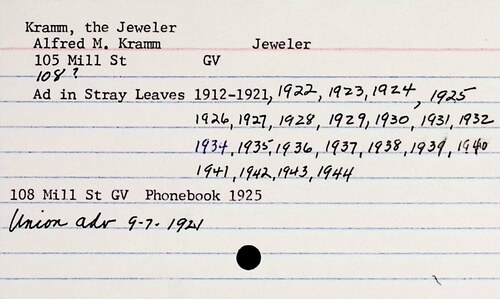 Kramm, the Jeweler
Alfred M. Kramm Jeweler
105 Mill St GV
108?
Ad in Stray Leaves 1912-1921, 1922, 1923, 1924, 1925
1926, 1927, 1928, 1929, 1930, 1931, 1932
1934, 1935, 1936, 1937, 1938, 1939, 1940
1941, 1942, 1943, 1944
108 Mill St GV Phonebook 1925
Union adv 9-7-1921